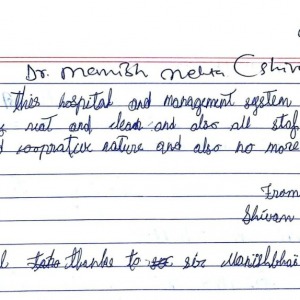 Dr. Manish Mehta (Shiv
This hospital and management system
neat and clean and also all staf
cooprative nature and also no more
From
Shivan
thanks to sir Manishbhai